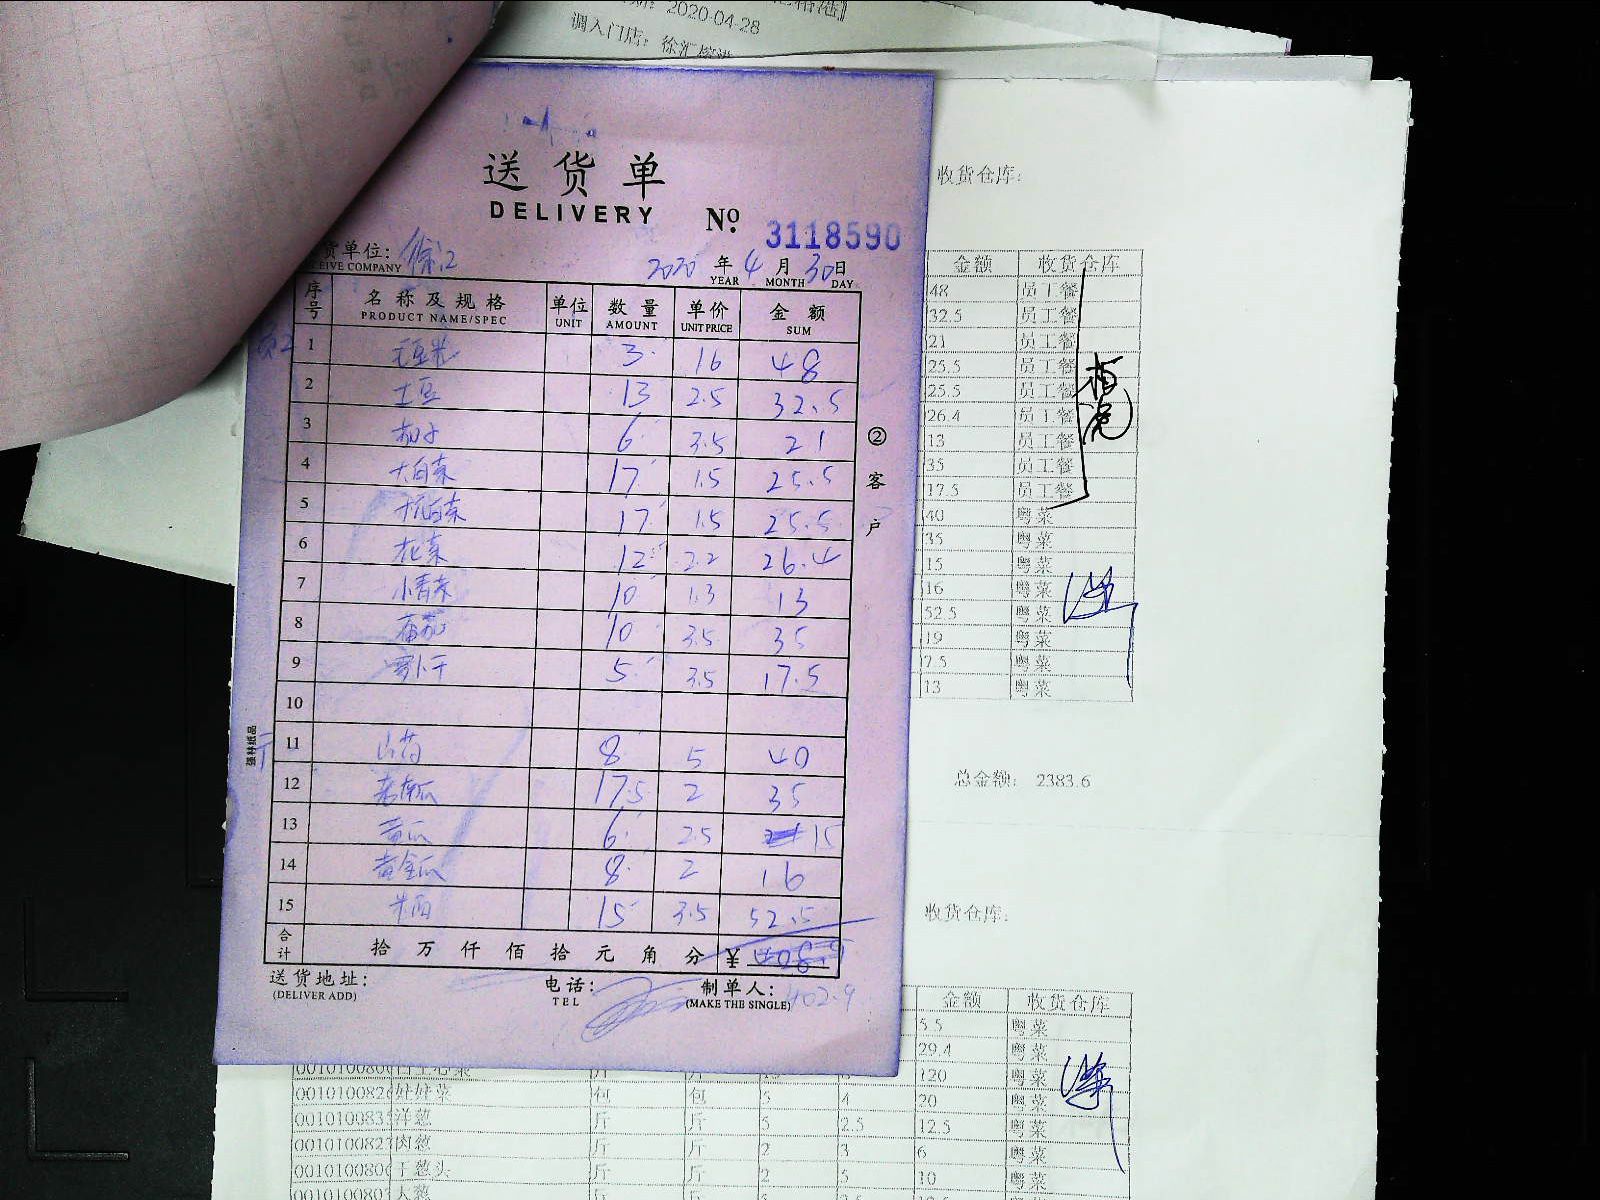 2020-04-28
调入门店：徐汇
送货单
DELIVERY
№ 3118590
货单位：徐汇
EIVE COMPANY
2020年4月30日
YEAR MONTH DAY
序号 名称及规格 单位 数量 单价 金额
PRODUCT NAME/SPEC UNIT AMOUNT UNIT PRICE SUM
1 毛豆米 3 16 48
2 土豆 13 2.5 32.5
3 茄子 6 3.5 21
4 大白菜 17 1.5 25.5
5 杭白菜 17 1.5 25.5
6 花菜 12 2.2 26.4
7 小青菜 10 1.3 13
8 番茄 10 3.5 35
9 萝卜干 5 3.5 17.5
10
11 山药 8 5 40
12 老南瓜 17.5 2 35
13 黄瓜 6 2.5 15
14 黄金瓜 8 2 16
15 15 3.5 52.5
合计 拾万仟佰拾元角分 ¥
送货地址：
(DELIVER ADD)
电话：
TEL
制单人：
(MAKE THE SINGLE)
402.9
②客户
强林纸品
收货仓库：
金额 收货仓库
48 员工餐
32.5 员工餐
21 员工餐
25.5 员工餐
25.5 员工餐
26.4 员工餐
13 员工餐
35 员工餐
17.5 员工餐
40 粤菜
35 粤菜
15 粤菜
16 粤菜
52.5 粤菜
19 粤菜
7.5 粤菜
13 粤菜
总金额： 2383.6
收货仓库：
金额 收货仓库
5.5 粤菜
29.4 粤菜
120 粤菜
00101082 好好菜 包 包 5 4 20 粤菜
00101083 洋葱 斤 斤 5 2.5 12.5 粤菜
00101082 肉葱 斤 斤 2 3 6 粤菜
00101080 干葱头 斤 斤 2 5 10 粤菜
大葱